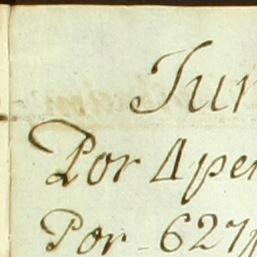 Jun
Por 4 pe
Por 627